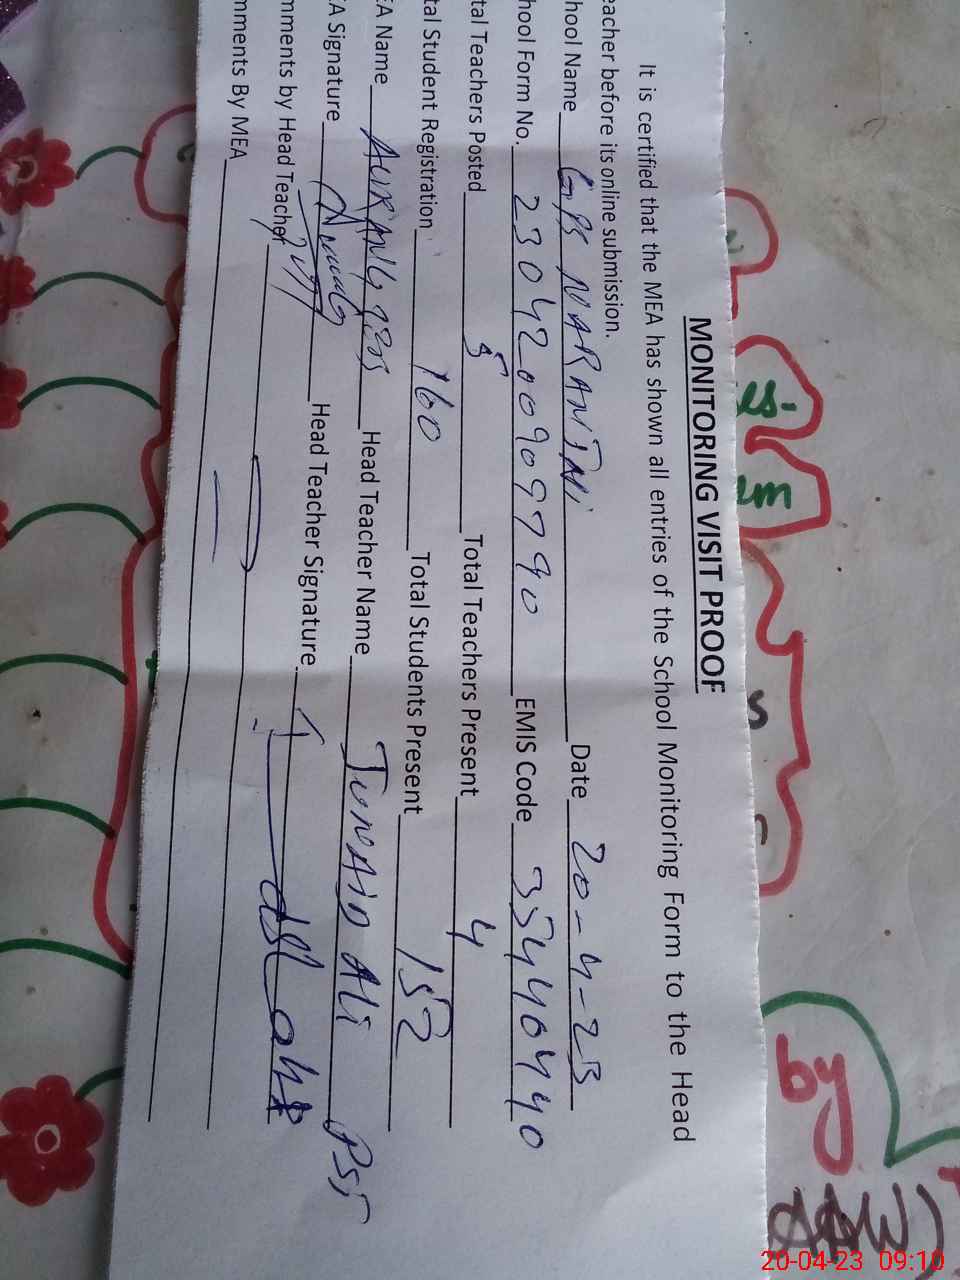 MONITORING VISIT PROOF
It is certified that the MEA has shown all entries of the School Monitoring Form to the Head
eacher before its online submission.
hool Name GPS NARANJI Date 20-4-23
hool Form No. 23042009097790 EMIS Code 35440440
tal Teachers Posted 5 Total Teachers Present 4
tal Student Registration 160 Total Students Present 152
EA Name AURANGZEB Head Teacher Name JUNAID ALI PST
EA Signature Head Teacher Signature
mments by Head Teacher
mments By MEA
by
20-04-23 09:10